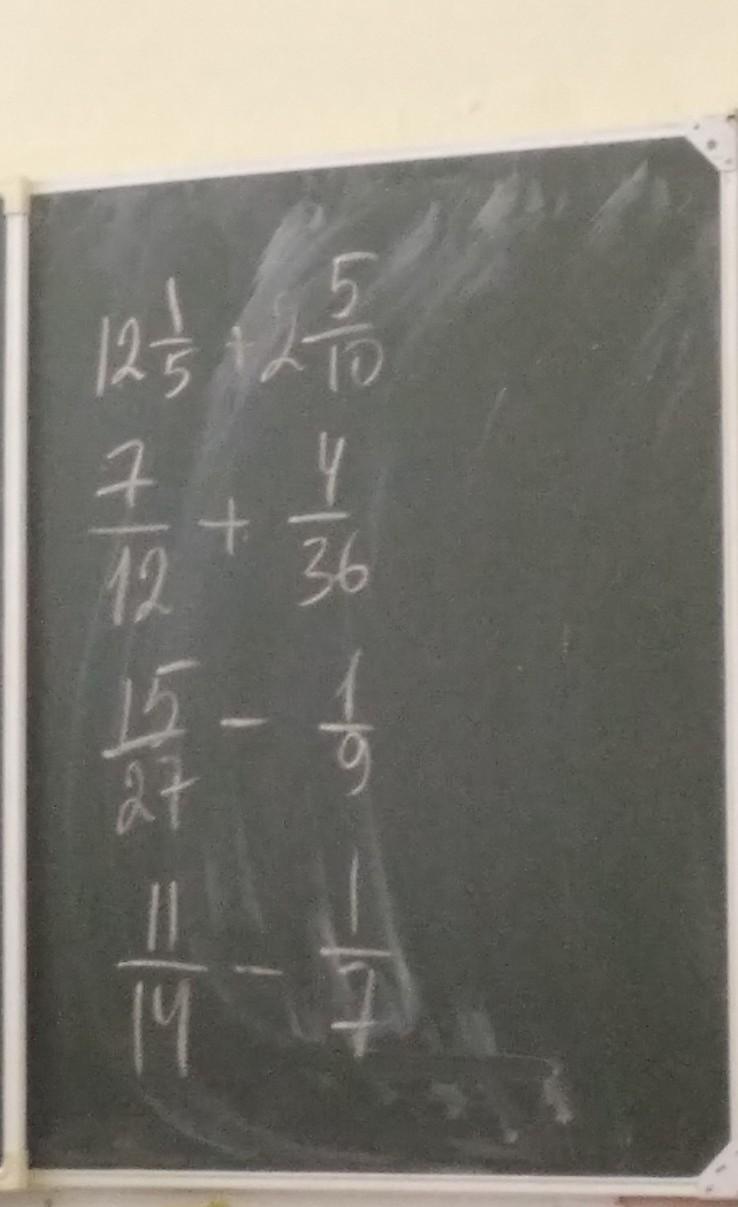 12 1/5 + 2 5/10
7/12 + 4/36
15/27 - 1/9
11/14 - 1/7